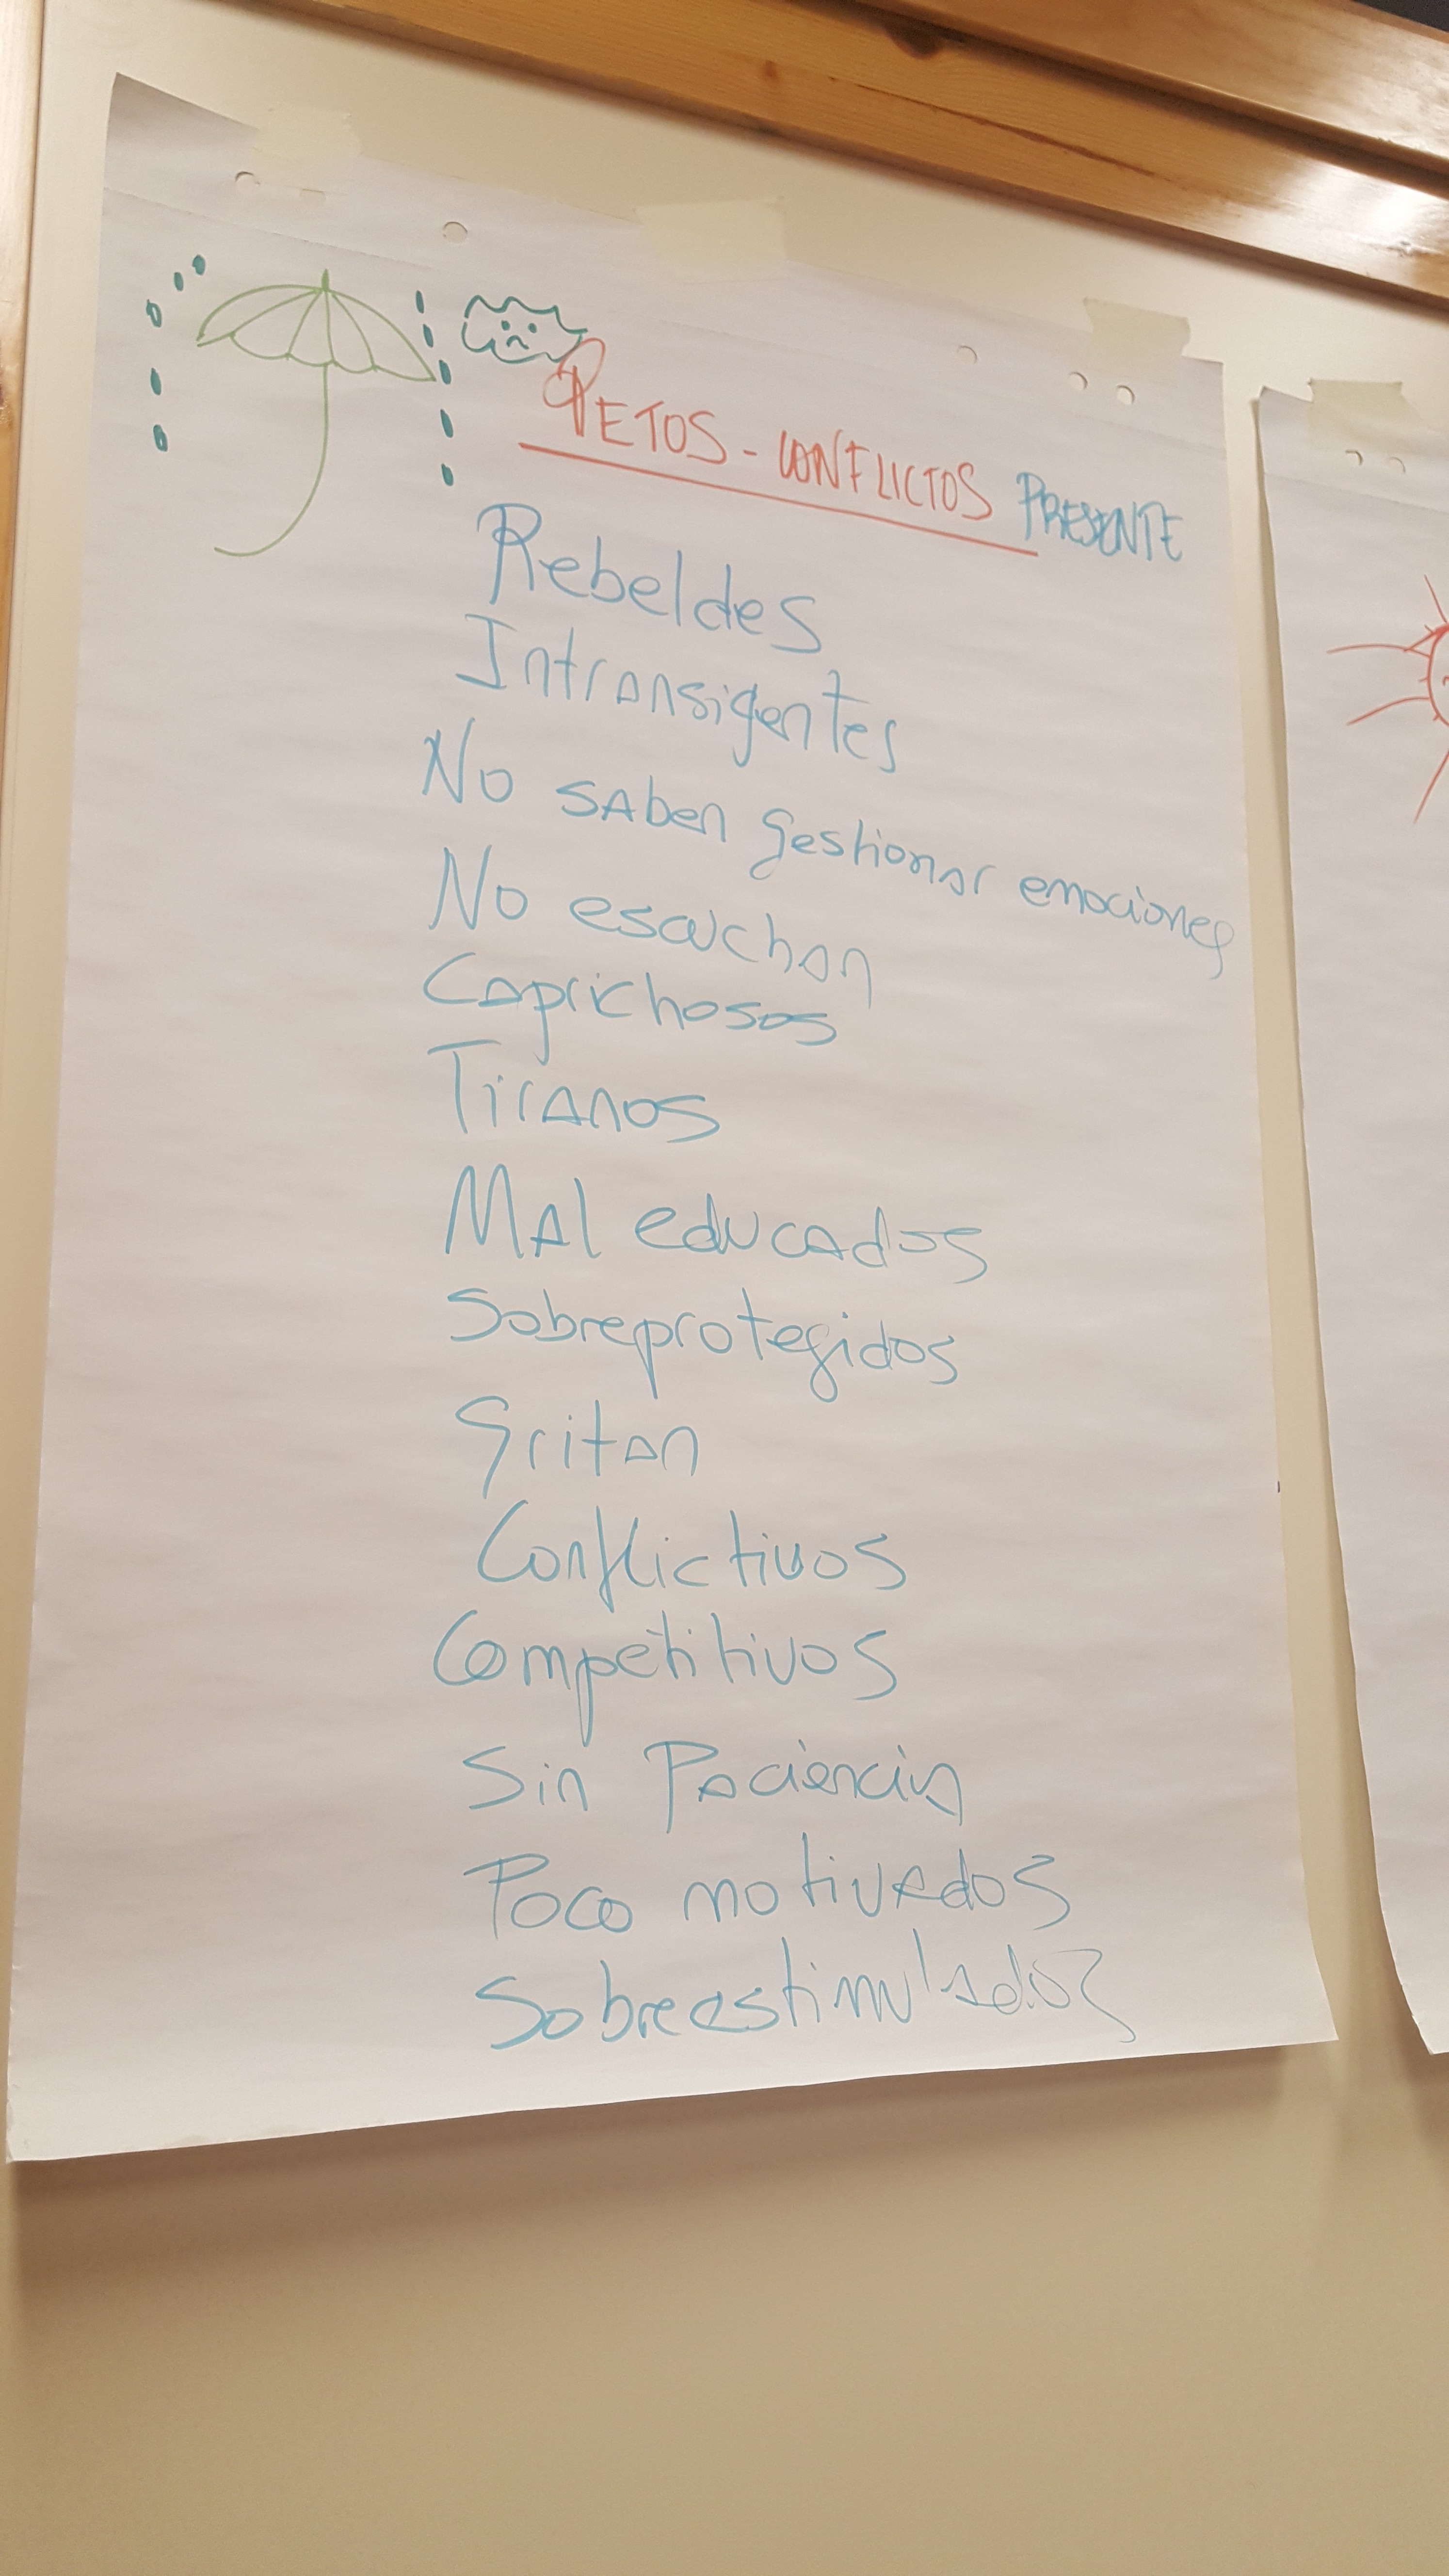 RETOS - CONFLICTOS PRESENTE
Rebeldes
Intransigentes
No saben gestionar emociones
No escuchan
Caprichosos
Tiranos
Mal educados
Sobreprotegidos
Gritan
Conflictivos
Competitivos
Sin Paciencia
Poco motivados
Sobreestimulados